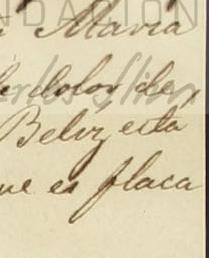 FUNDACIÓN
a Maria
de dolor de
Beliz esta
ue es flaca